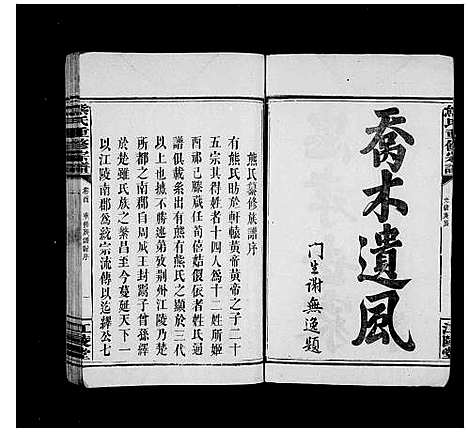 喬木遺風
門生謝無逸題
熊氏纂修族譜序
有熊氏昉於軒轅黃帝黃帝之子二十
五宗其得姓者十四人為十二姓所姬
酉祁己滕箴任荀姞儇依者姓氏迥
譜俱載系出有熊有熊氏之顯於三代
以上也據不勝述弟攷荆州江陵乃楚
所都之南郡自周成王封鬻子曾孫繹
於楚雖氏族之繁昌至今蔓延天下一
以江陵南郡為統宗流傳以迄繹公七
熊氏重修宗譜
江陵堂